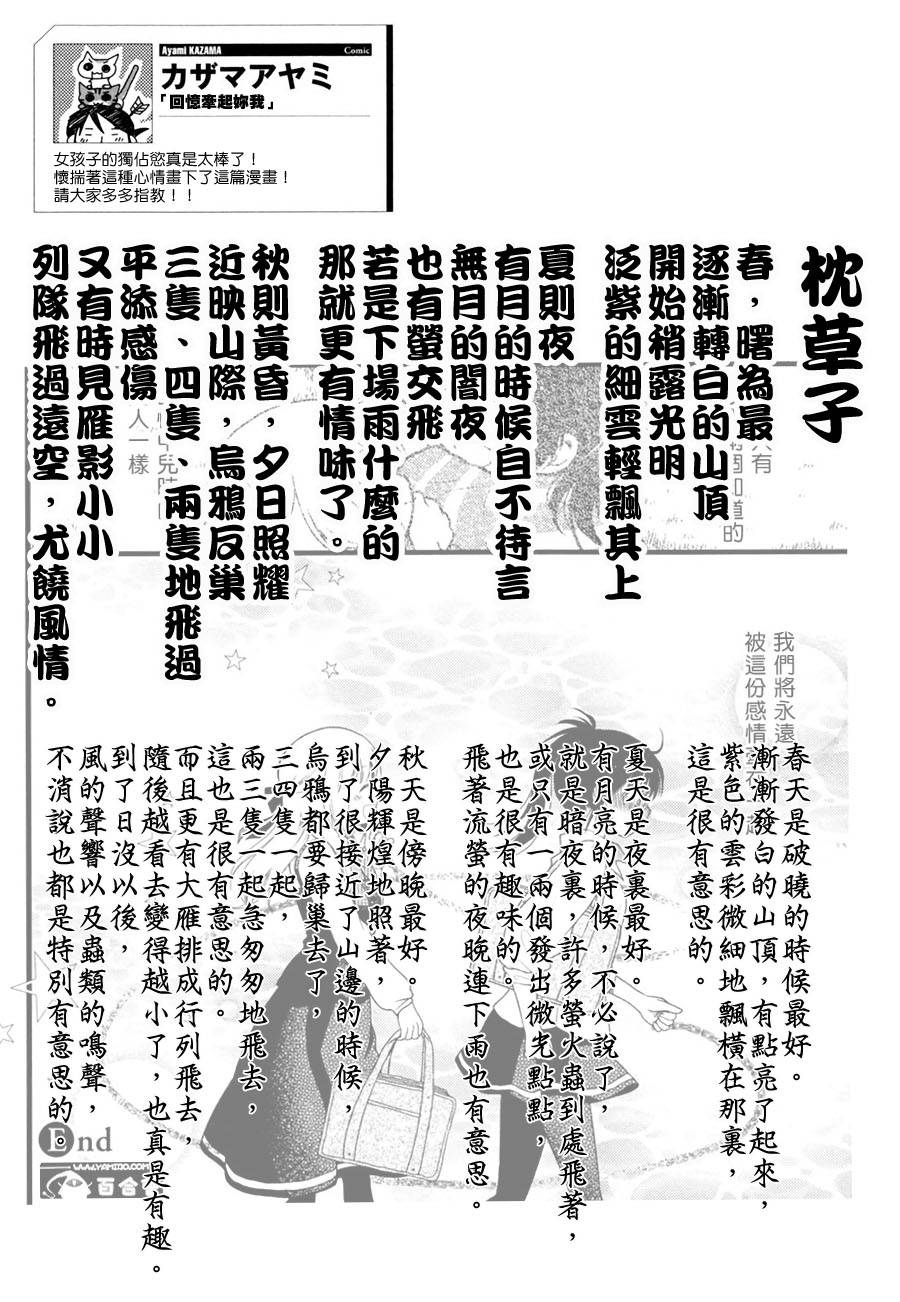 Ayami KAZAMA
Comic
カザマアヤミ
「回憶牽起妳我」
女孩子的獨佔慾真是太棒了！
懷揣著這種心情畫下了這篇漫畫！
請大家多多指教！！
枕草子
春，曙為最
逐漸轉白的山頂
開始稍露光明
泛紫的細雲輕飄其上
夏則夜
有月的時候自不待言
無月的闇夜
也有螢交飛
若是下場雨什麼的
那就更有情味了。
秋則黃昏，夕日照耀
近映山際，烏鴉反巢
三隻、四隻、兩隻地飛過
平添感傷
又有時見雁影小小
列隊飛過遠空，尤饒風情。
人一樣
我們將永遠
被這份感情
春天是破曉的時候最好。
漸漸發白的山頂，有點亮了起來，
紫色的雲彩微細地飄橫在那裏，
這是很有意思的。
夏天是夜裏最好。
有月亮的時候，不必說了，
就是暗夜裏，許多螢火蟲到處飛著，
或只有一兩個發出微光點點，
也是很有趣味的。
飛著流螢的夜晚連下雨也有意思。
秋天是傍晚最好。
夕陽輝煌地照著，
到了很接近了山邊的時候，
烏鴉都要歸巢去了，
三四隻一起，
兩三隻一起急匆匆地飛去，
這也是很有意思的。
而且更有大雁排成行列飛去，
隨後越看去變得越小了，也真是有趣。
到了日沒以後，
風的聲響以及蟲類的鳴聲，
不消說也都是特別有意思的。
End
WWW.YAMIBO.COM
百合